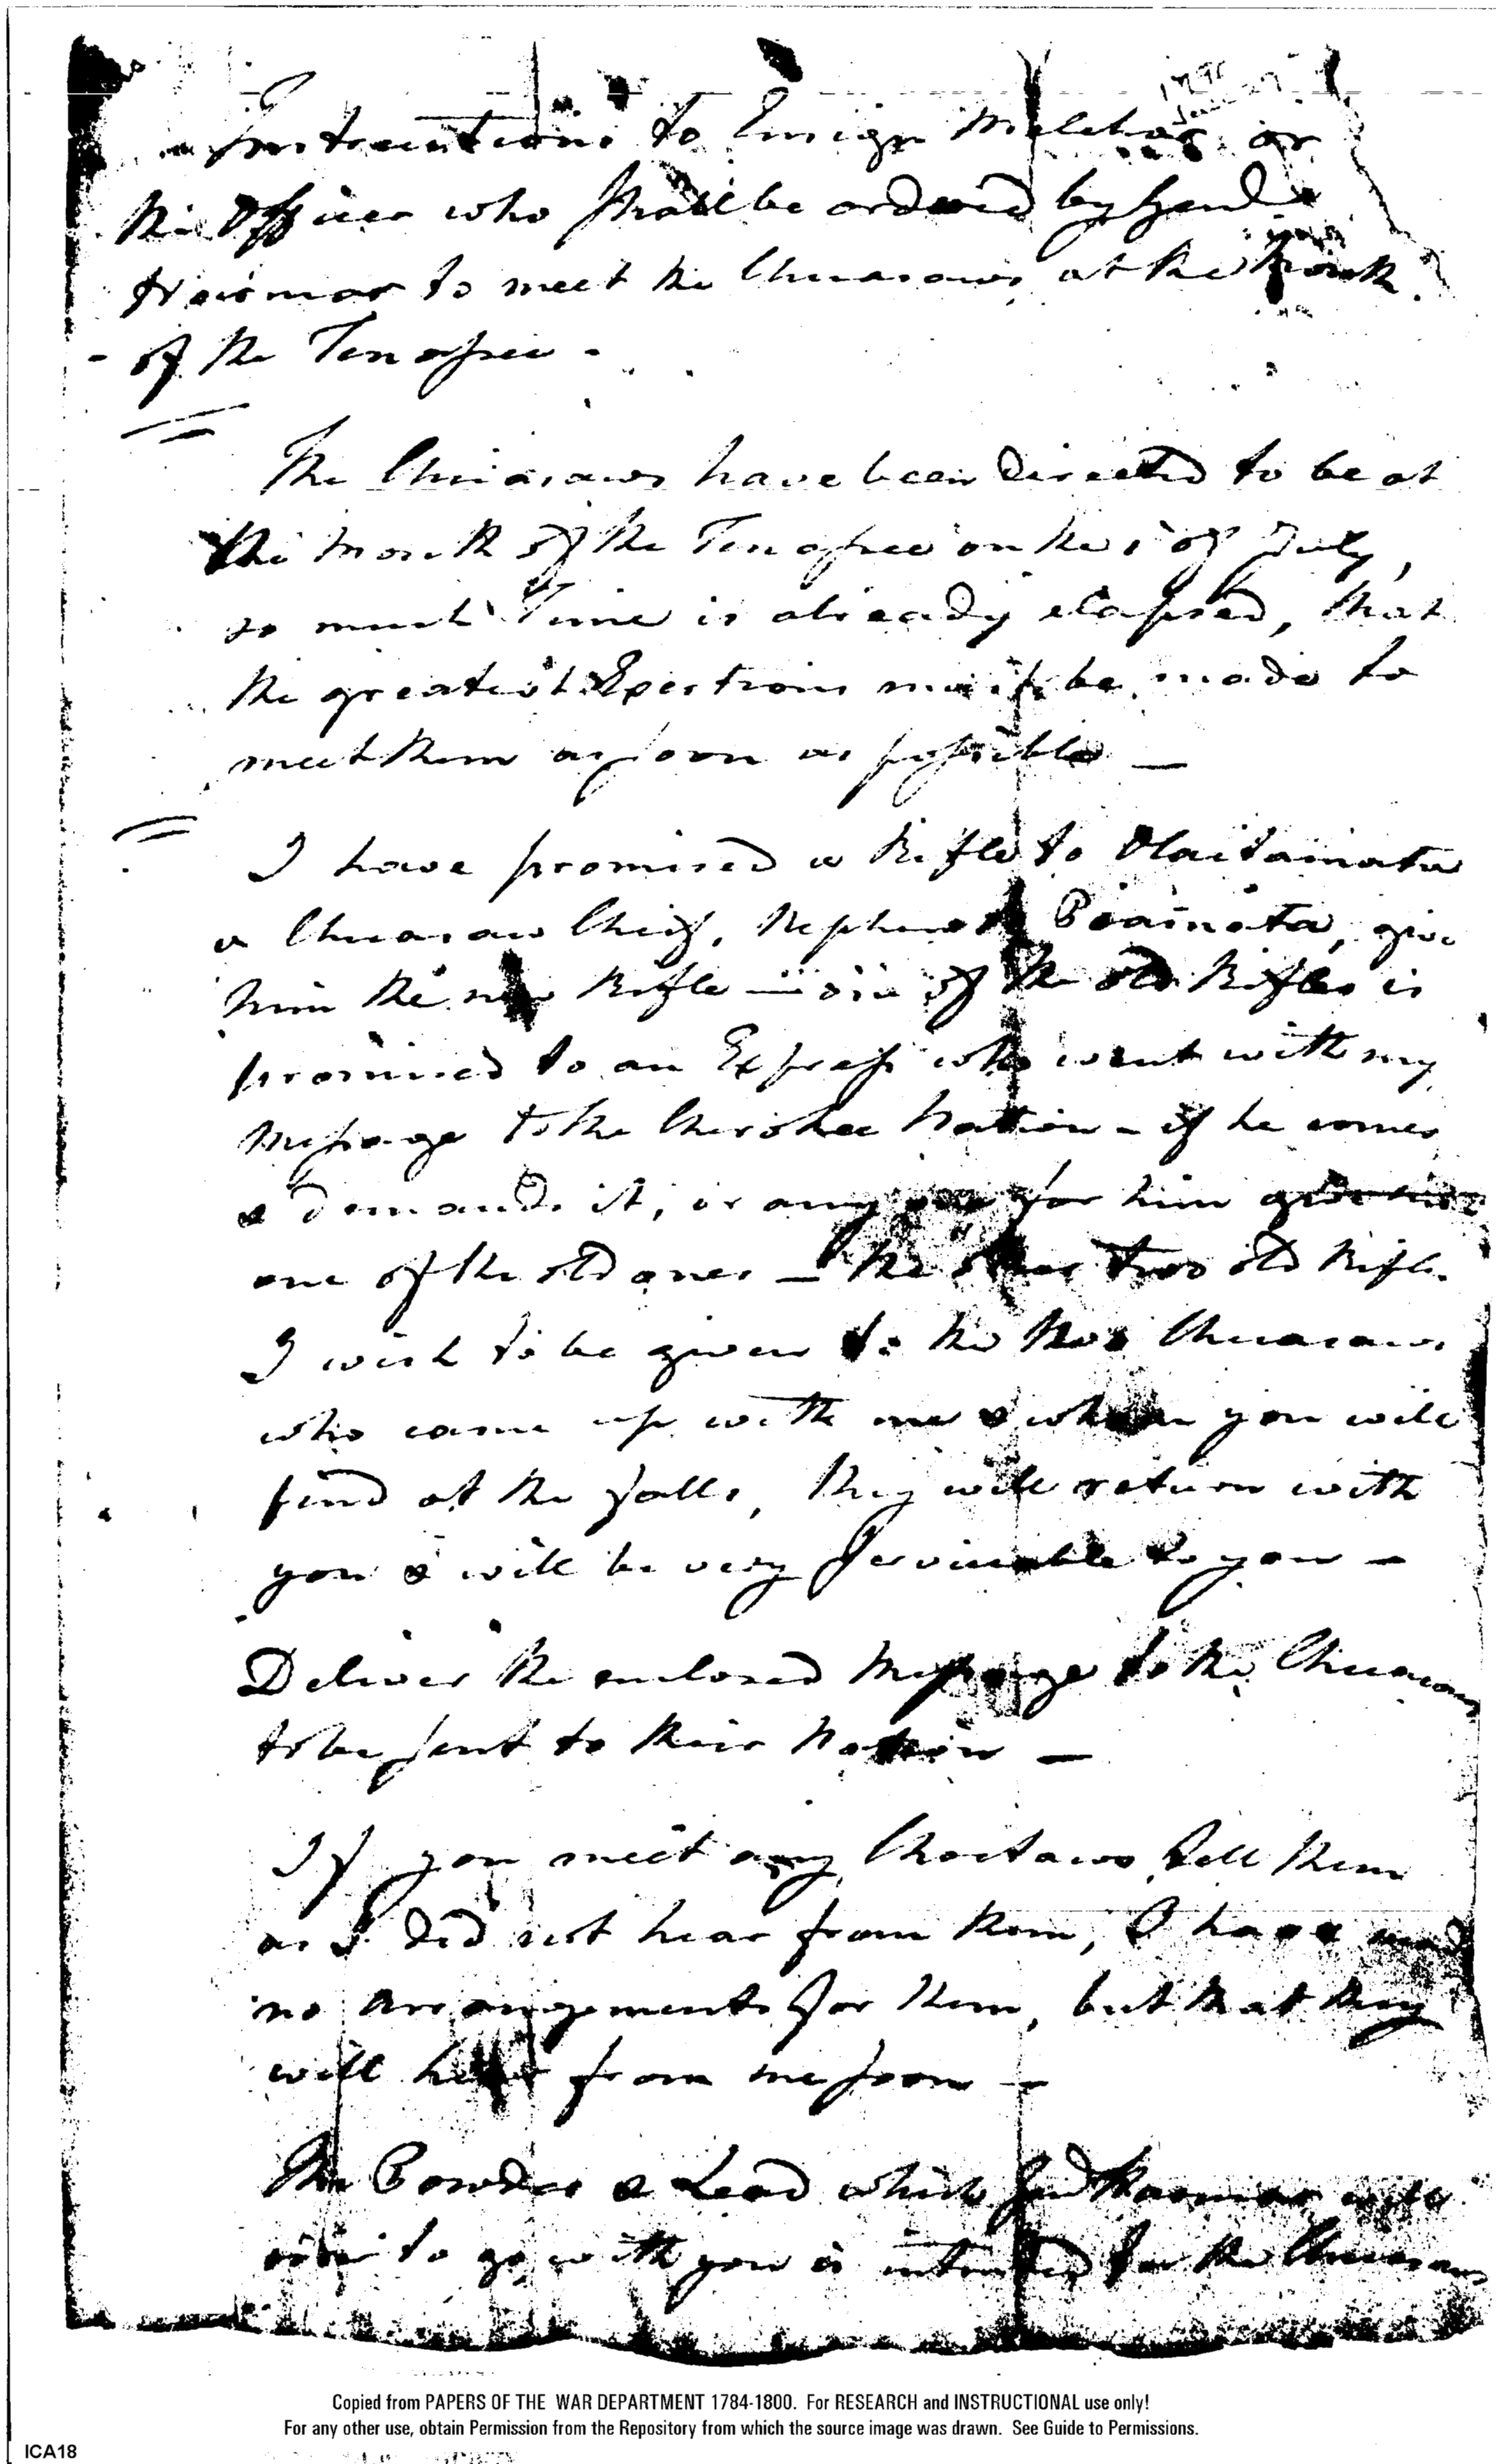 Instructions to Ensign Melcher or
the Officer who shall be ordered by Genl
Harmar to meet the Chicasaws at the Mouth
of the Tenassee -
The Chicasaws have been directed to be at
the Mouth of the Tenassee on the 1 of July,
so much Time is already elapsed, that
the greatest Exertions must be made to
meet them as soon as possible —
I have promised a Rifle to
a Chicasaw Chief, Nephew to Piamota, give
him the new Rifle — one of the old Rifles is
promised to an Express who went with my
Message to the Cherokee Nation - if he comes
& demands it, or any one for him give him
one of the old ones — the other two old Rifles
I wish to be given to the two Chicasaws
who came up with me & whom you will
find at the falls, they will return with
you & will be very serviceable to you -
Deliver the enclosed Message to the Chicasaws
to be sent to their Nation —
If you meet any Choctaws tell them
as I did not hear from them, I have made
no Arrangements for them, but that they
will hear from me soon —
The Powder & Lead which Genl Harmar will
order to go with you is intended for the Chicasaws
Copied from PAPERS OF THE WAR DEPARTMENT 1784-1800. For RESEARCH and INSTRUCTIONAL use only!
For any other use, obtain Permission from the Repository from which the source image was drawn. See Guide to Permissions.
ICA18